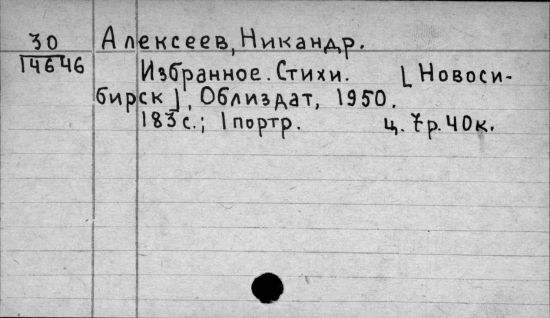 30
14646
Алексеев, Никандр.
Избранное. Стихи. [Новоси-
бирск], Облиздат, 1950.
183 с.; 1 портр. ц. 7 р. 40 к.